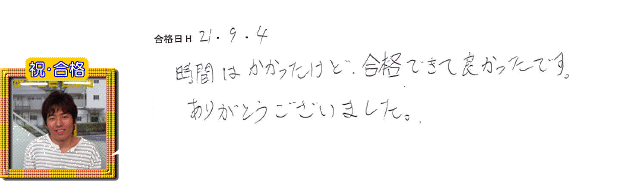 合格日H 21・9・4
祝・合格
時間はかかったけど、合格できて良かったです。
ありがとうございました。